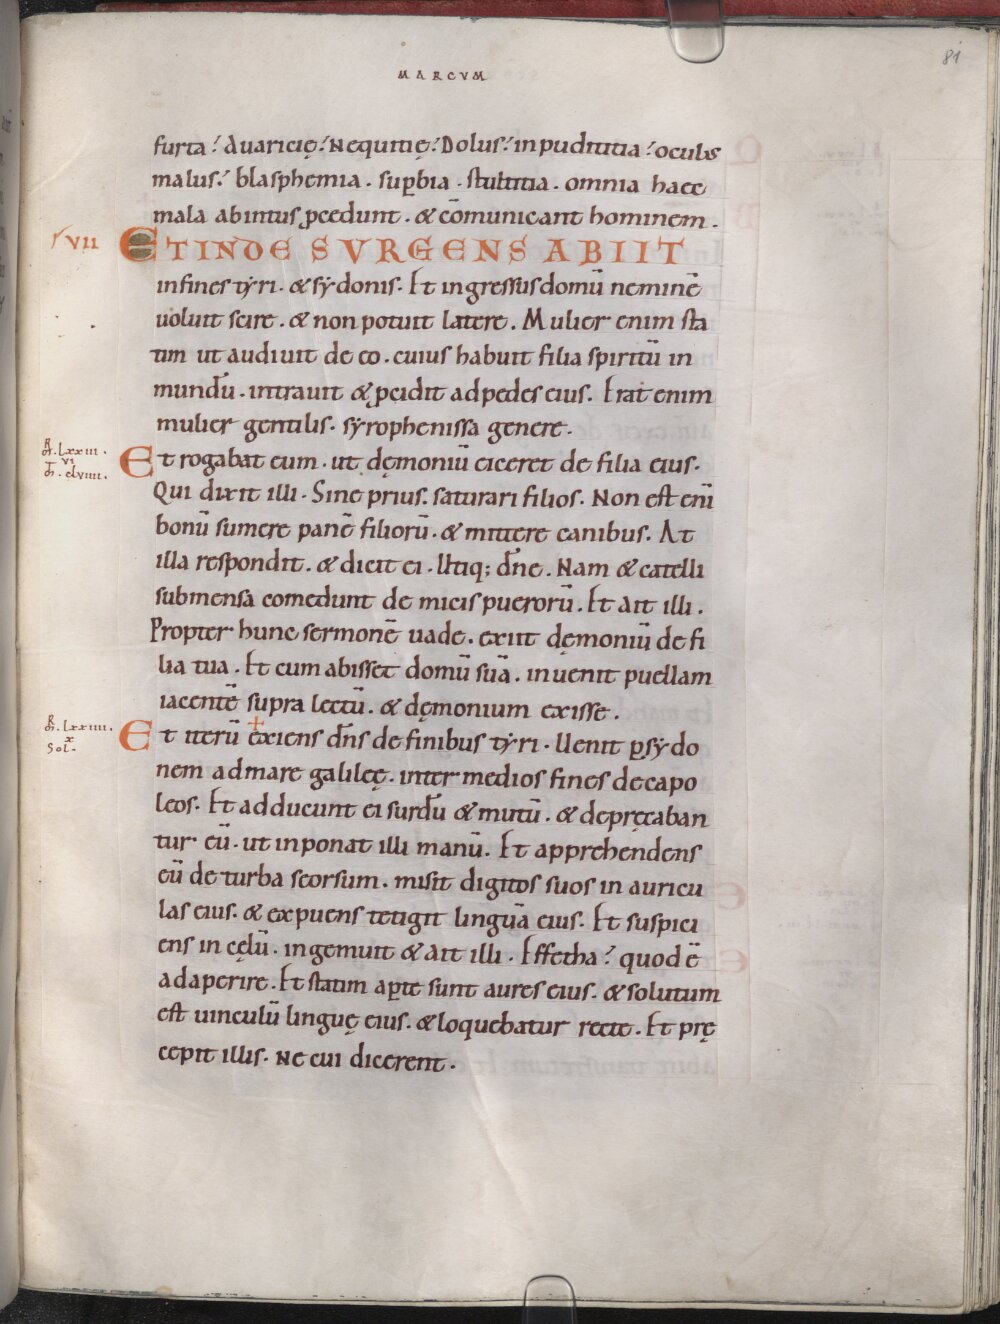 MARCVM
81
furta? Auaricię? Nequitię? Dolus? inpudititia? oculus
malus? blasphemia. suꝑbia. stultitia. omnia haec
mala abintus ꝓcedunt. & cōmunicant hominem.
VII ETINDE SVRGENS ABIIT
infines tẏri. & sẏdonis. Et ingressus domū neminē
uoluit scire. & non potuit latere. Mulier enim sta
tim ut audiuit de eo. cuius habuit filia spiritū in
mundū. intrauit & ꝓcidit adpedes eius. Erat enim
mulier gentilis. sẏrophenissa genere.
lxxiii.
vi
clviiii.
Et rogabat eum. ut dęmoniū eiceret de filia eius.
Qui dixit illi. Sine prius. saturari filios. Non est eni
bonū sumere panē filiorū. & mittere canibus. At
illa respondit. & dicit ei. Utiq; dn̄e. Nam & catelli
submensa comedunt de micis puerorū. Et ait illi.
Propter hunc sermonē uade. exiit dęmoniū de fi
lia tua. Et cum abisset domū suā. inuenit puellam
iacentē supra lectū. & dęmonium exisse.
lxxiiii.
x
Sol.
Et iterū exiens dn̄s de finibus tẏri. Uenit ꝑ sẏdo
nem admare galileę. inter medios fines decapo
leos. Et adducunt ei surdū & mutū. & depręcaban
tur eū. ut inponat illi manū. Et apprehendens
eū de turba seorsum. misit digitos suos in auricu
las eius. & expuens tetigit linguā eius. Et suspici
ens in cęlū. ingemuit & ait illi. Effetha? quod ē
adaperire. Et statim aꝑte sunt aures eius. & solutum
est uinculū linguę eius. & loquebatur recte. Et prę
cepit illis. Ne cui dicerent.